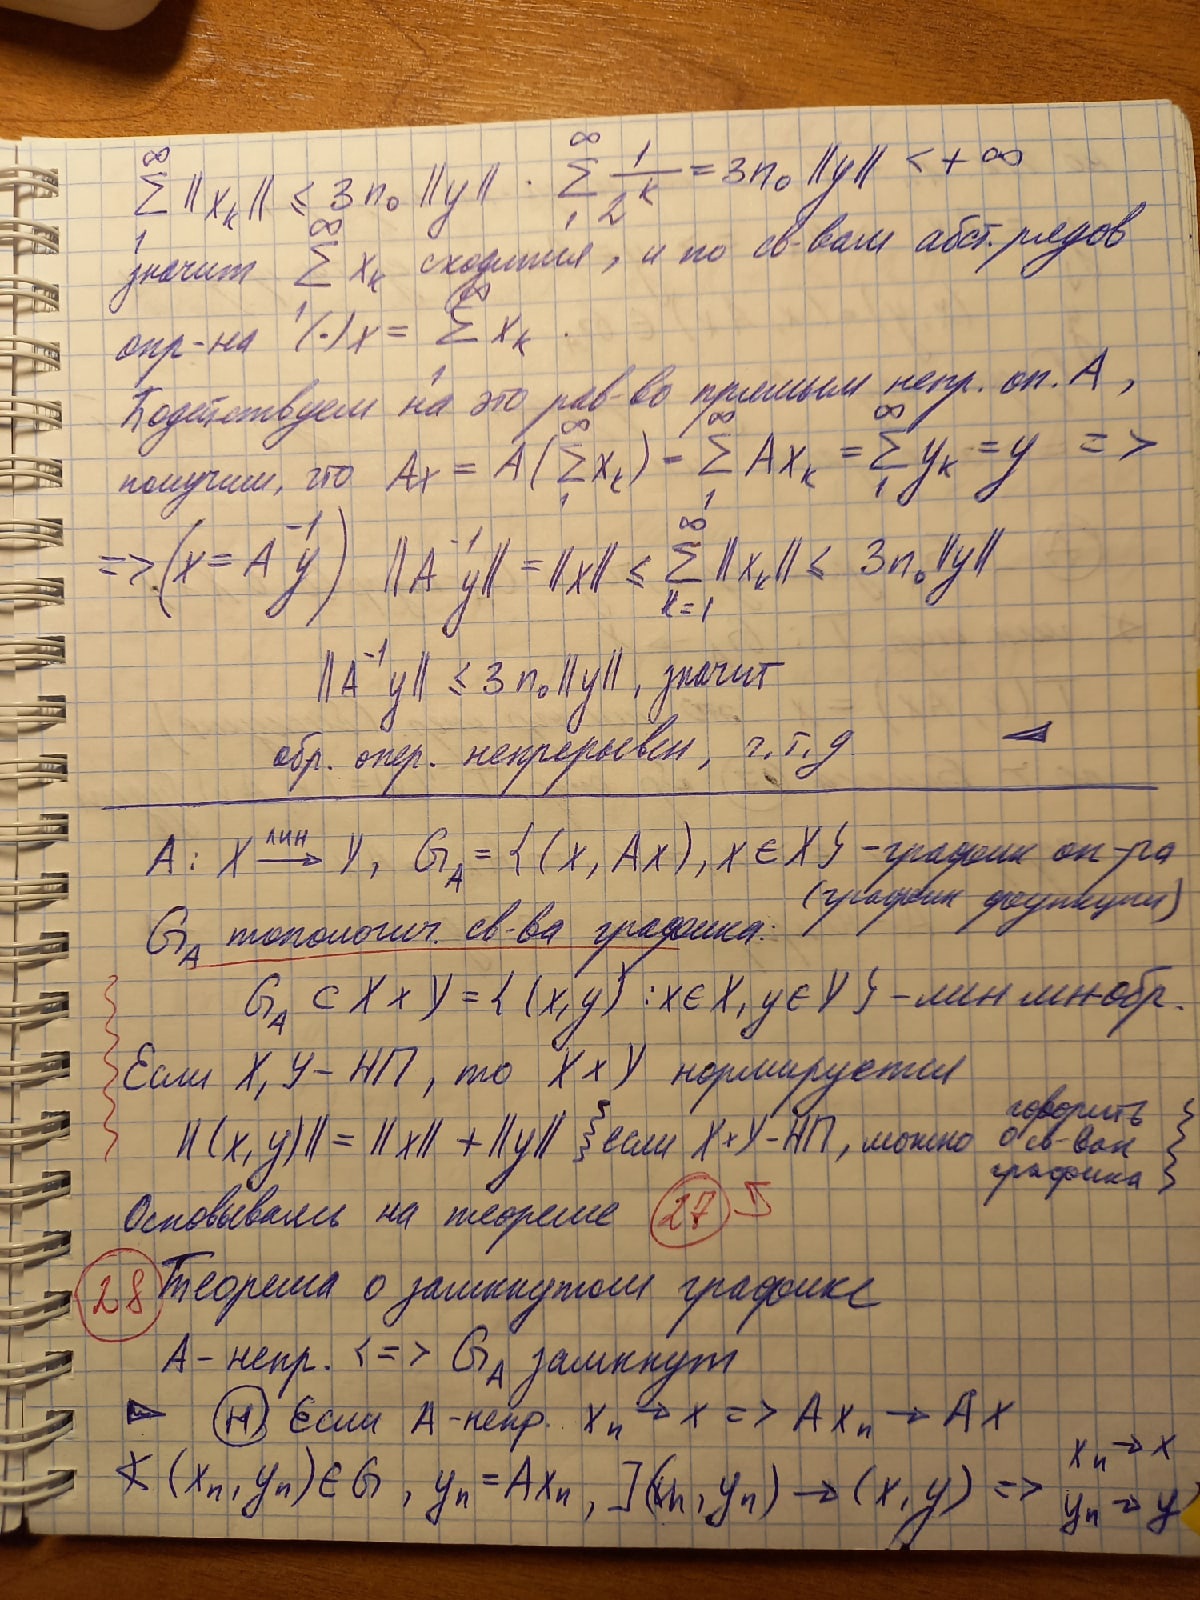 ∑₁^∞ ||xₖ|| ≤ 3n₀ ||y|| · ∑₁^∞ 1/2^k = 3n₀ ||y|| < +∞
значит ∑₁^∞ xₖ сходится, и по св-вам абст. рядов
опр-на (·) x = ∑₁^∞ xₖ .
Подействуем на это рав-во прямым непр. оп. A,
получим, что Ax = A(∑₁^∞ xₖ) = ∑₁^∞ Axₖ = ∑₁^∞ yₖ = y =>
=> (x = A⁻¹y) ||A⁻¹y|| = ||x|| ≤ ∑_{k=1}^∞ ||xₖ|| ≤ 3n₀ ||y||
||A⁻¹y|| ≤ 3n₀ ||y||, значит
обр. опер. непрерывен, ч.т.д ◄
A: X —лин→ Y, G_A = {(x, Ax), x ∈ X} - график оп-ра
(график функции)
G_A топологич. св-ва графика:
G_A ⊂ X × Y = {(x,y) : x ∈ X, y ∈ Y} - лин мн-обр.
Если X, Y - НП, то X × Y нормируется
||(x,y)|| = ||x|| + ||y|| } если X × Y - НП, можно говорить о св-вах графика }
Основываясь на теореме 27
28 Теорема о замкнутом графике
A - непр. <=> G_A замкнут
► Н) Если A - непр. xₙ → x => Axₙ → Ax
∢ (xₙ, yₙ) ∈ G, yₙ = Axₙ, ](xₙ, yₙ) → (x, y) => xₙ → x
yₙ → y